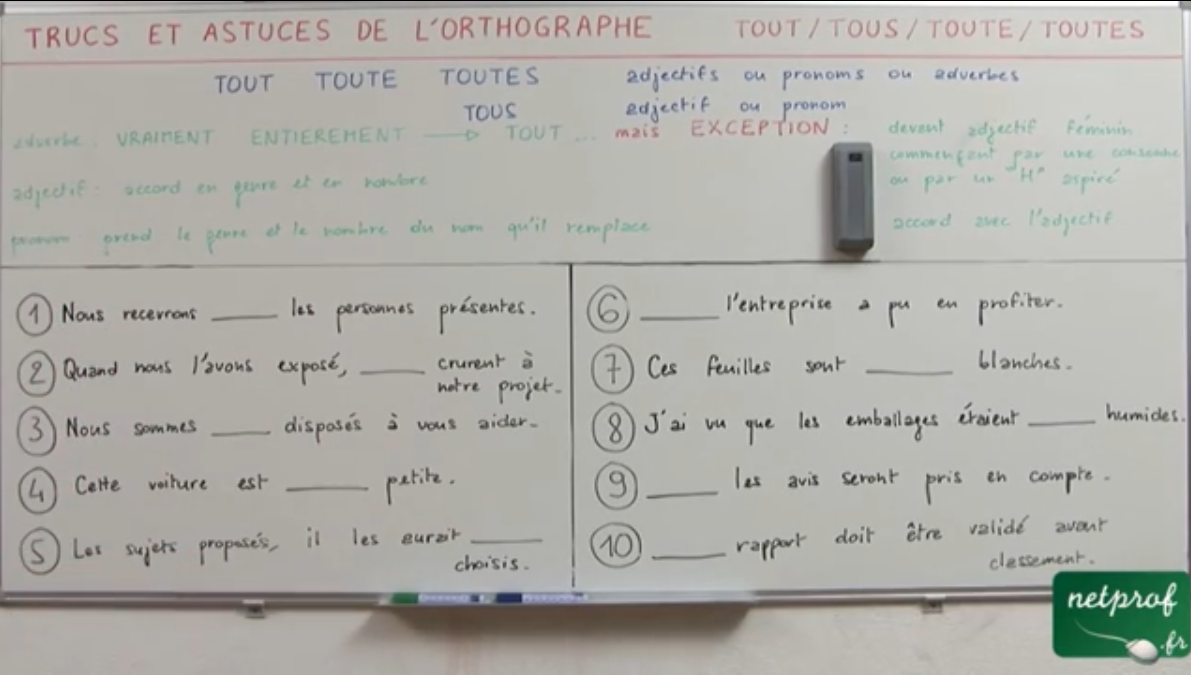 TRUCS ET ASTUCES DE L'ORTHOGRAPHE TOUT / TOUS / TOUTE / TOUTES
TOUT TOUTE TOUTES adjectifs ou pronoms ou adverbes
TOUS adjectif ou pronom
adverbe : VRAIMENT ENTIEREMENT → TOUT ... mais EXCEPTION : devant adjectif féminin
commençant par une consonne
ou par un "H" aspiré
adjectif : accord en genre et en nombre
accord avec l'adjectif
pronom prend le genre et le nombre du nom qu'il remplace
1 Nous recevrons ____ les personnes présentes.
2 Quand nous l'avons exposé, ____ crurent à
notre projet.
3 Nous sommes ____ disposés à vous aider.
4 Cette voiture est ____ petite.
5 Les sujets proposés, il les aurait ____
choisis.
6 ____ l'entreprise a pu en profiter.
7 Ces feuilles sont ____ blanches.
8 J'ai vu que les emballages étaient ____ humides.
9 ____ les avis seront pris en compte.
10 ____ rapport doit être validé avant
classement.
netprof
.fr